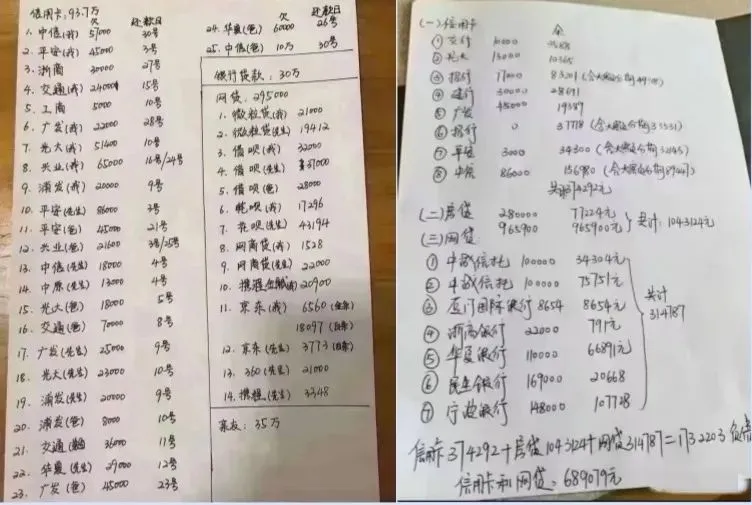 信用卡:93.7万
欠 还款日
1. 中信(我) 57000 30号
2. 平安(我) 45000 3号
3. 浙商 30000 27号
4. 交通(我) 24000 15号
5. 工商 5000 10号
6. 广发(我) 22000 28号
7. 光大(我) 51400 10号
8. 兴业(我) 65000 16号/24号
9. 浦发(我) 20000 9号
10. 平安(先生) 86000 3号
11. 平安(爸) 45000 21号
12. 兴业(爸) 21600 3号/25号
13. 中信(先生) 18000 4号
14. 中原(先生) 13000 4号
15. 光大(爸) 18000 5号
16. 交通(爸) 70000 8号
17. 广发(先生) 25000 9号
18. 光大(先生) 23000 10号
19. 浦发(先生) 20000 9号
20. 浦发(爸) 8000 10号
21. 交通 36000 11号
22. 华夏(先生) 29000 12号
23. 广发(爸) 45000 23号
欠 还款日
24. 华夏(爸) 60000 26号
25. 中信(爸) 10万 30号
银行贷款:30万
网贷:295000
1. 微粒贷(我) 21000
2. 微粒贷(先生) 19412
3. 借呗(我) 32000
4. 借呗(先生)
5. 借呗(爸) 28000
6. 花呗(我) 17296
7. 花呗(先生) 43194
8. 网商贷(我) 1528
9. 网商贷(先生) 22000
10. 携程金融(我) 20900
11. 京东(我) 6560 (金条)
18097 (白条)
12. 京东(先生) 3773 (白条)
13. 360(先生) 21000
14. 携程(先生) 3348
亲友:35万
(一)信用卡 余
① 交行 10000
② 光大 13000 10365
③ 招行 17000
④ 建行 30000 28691
⑤ 广发 45000 19389
⑥ 招行 0 37778
⑦ 平安 3000 34300
⑧ 中信 86000 156980
共:374292元
(二)房贷 280000 77224元
965900 965900元 共计:1043124元
(三)网贷
① 中诚信托 100000 34304元
② 中诚信托 100000 75751元
③ 厦门国际银行 8654 8654元
④ 浙商银行 22000 791元
⑤ 华夏银行 110000 66891元
⑥ 民生银行 169000 20668
⑦ 宁波银行 148000 107728
共计
314787
信用卡374292+房贷1043124+网贷314787=1732203负债
信用卡和网贷:689079元